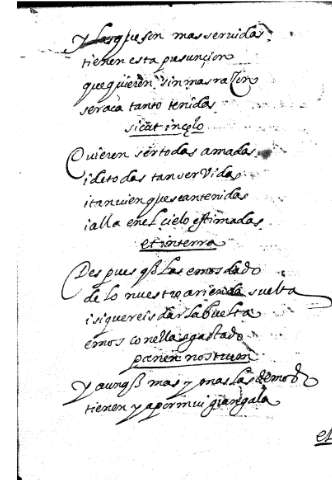 Y las que son mas servidas
tienen esta presunçion
que quieren sin mas raçon
ser aca tanto tenidas
sicut in çelo
Quieren ser todas amadas
i de todas tan servidas
i tan bien que sean tenidas
i alla en el cielo estimadas
et in terra
Despues q las emos dado
de lo nuestro a rienda suelta
i si quereis dar la buelta
emos con ellas gastado
panen nostrum
Y aunq mas y mas las demos
tienen y a por mui gran gala
et